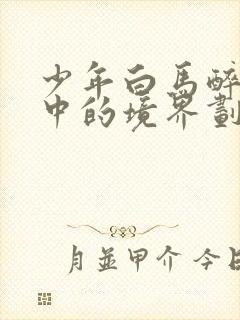 少年白马醉
中的境界劃
月並甲介 今日